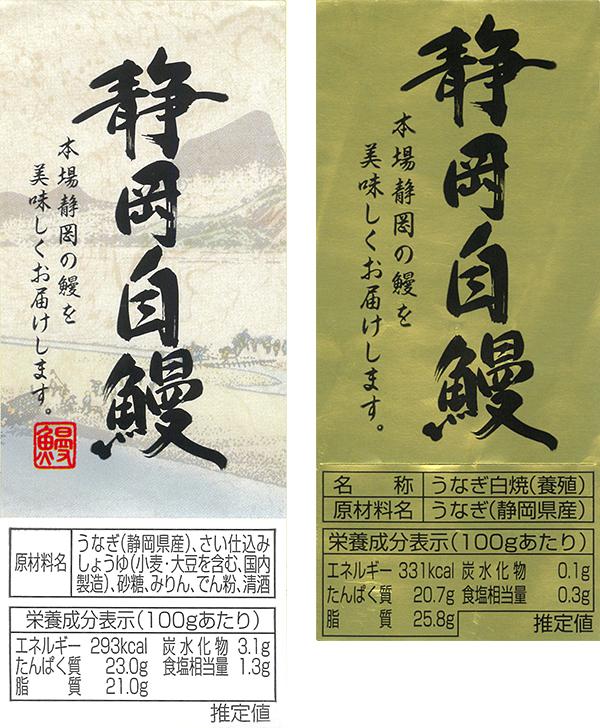 静岡自鰻
本場静岡の鰻を
美味しくお届けします。
鰻
原材料名
うなぎ(静岡県産)、さい仕込み
しょうゆ(小麦・大豆を含む、国内
製造)、砂糖、みりん、でん粉、清酒
栄養成分表示(100gあたり)
エネルギー 293kcal 炭水化物 3.1g
たんぱく質 23.0g 食塩相当量 1.3g
脂質 21.0g
推定値
静岡自鰻
本場静岡の鰻を
美味しくお届けします。
名称 うなぎ白焼(養殖)
原材料名 うなぎ(静岡県産)
栄養成分表示(100gあたり)
エネルギー 331kcal 炭水化物 0.1g
たんぱく質 20.7g 食塩相当量 0.3g
脂質 25.8g
推定値